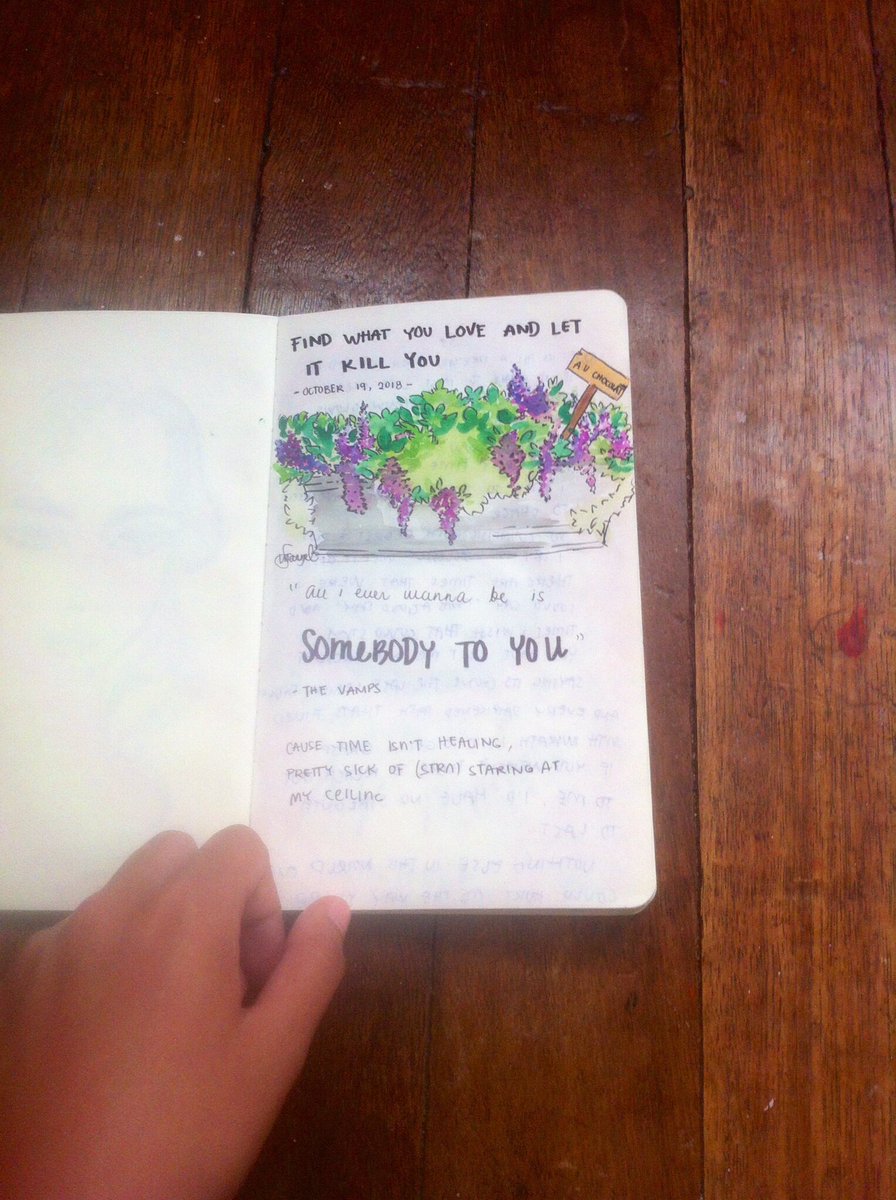 FIND WHAT YOU LOVE AND LET
IT KILL YOU
- OCTOBER 19, 2018 -
AU CHOCOLAT
"all i ever wanna be is
SOMEBODY TO YOU"
- THE VAMPS
CAUSE TIME ISN'T HEALING,
PRETTY SICK OF (STRA) STARING AT
MY CEILING